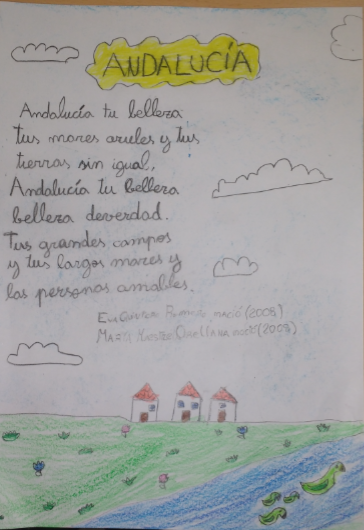 ANDALUCÍA
Andalucía tu belleza
tus mares azules y tus
tierras sin igual,
Andalucía tu belleza
belleza deverdad.
Tus grandes campos
y tus largos mares y
las personas amables.
nació (2008)
nació (2008)